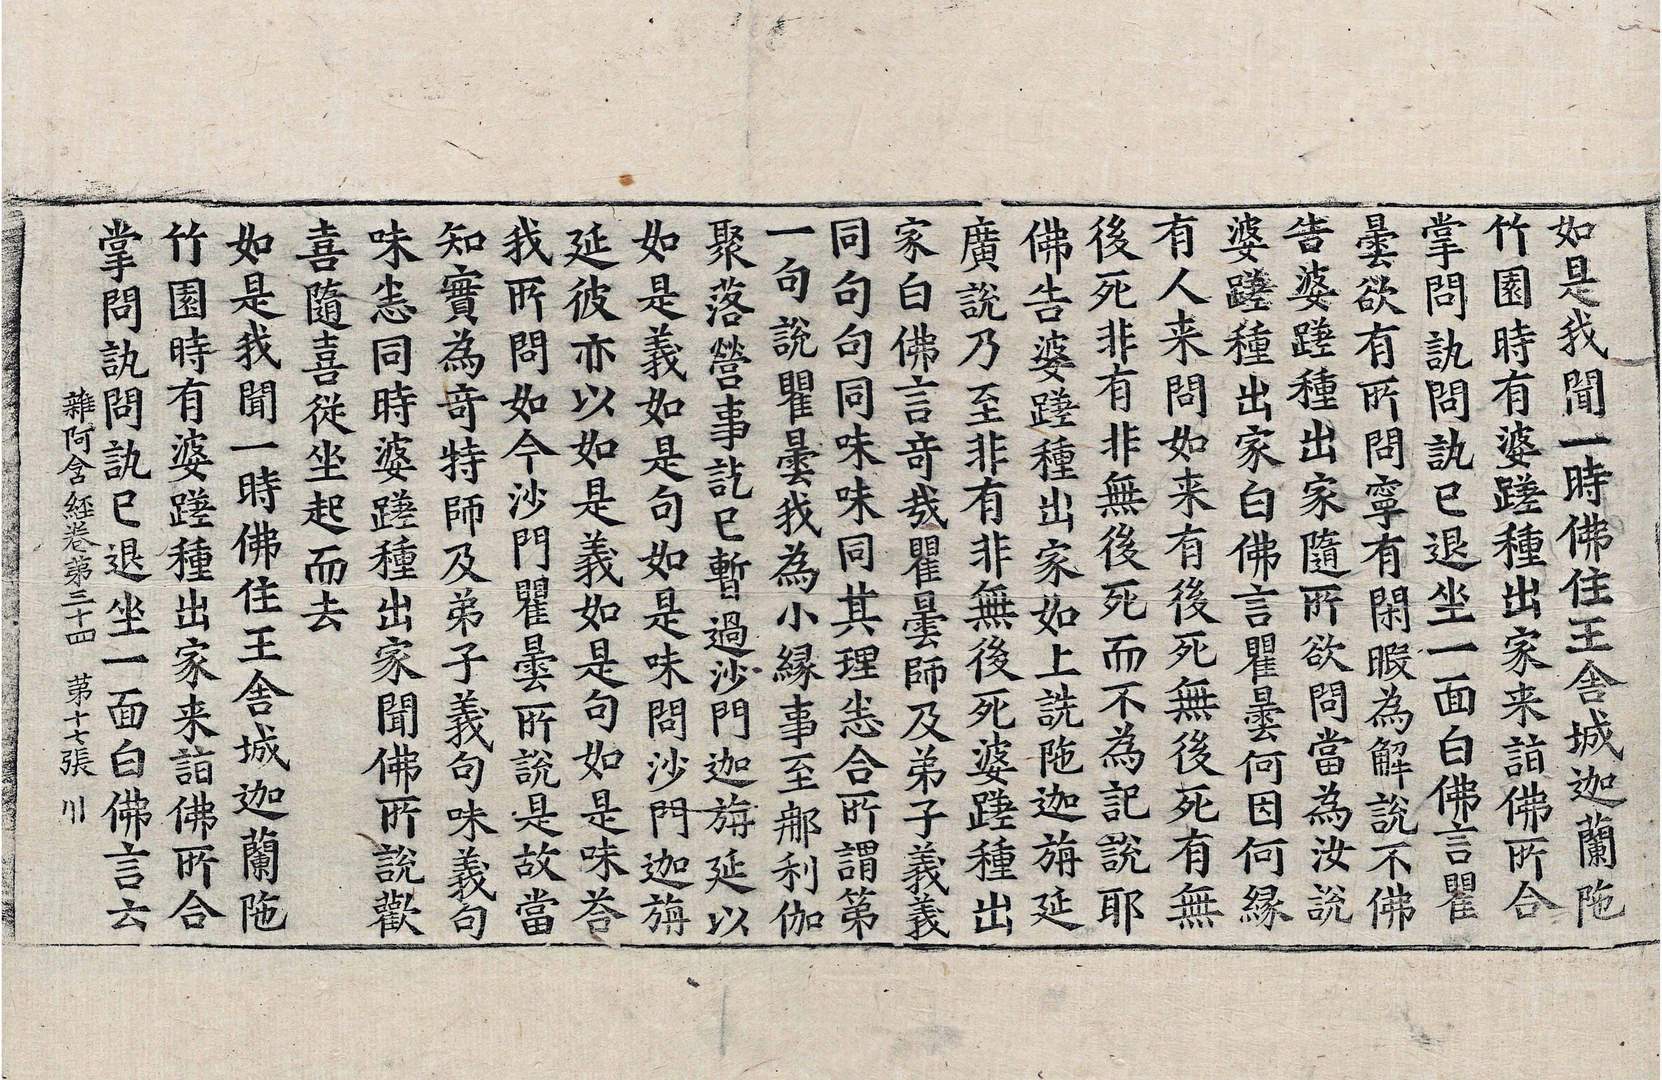 如是我聞一時佛住王舍城迦蘭陁
竹園時有婆蹉種出家来詣佛所合
掌問訊問訊已退坐一面白佛言瞿
曇欲有所問寧有閑暇為解說不佛
告婆蹉種出家隨所欲問當為汝說
婆蹉種出家白佛言瞿曇何因何縁
有人来問如来有後死無後死有無
後死非有非無後死而不為記說耶
佛告婆蹉種出家如上詵陁迦旃延
廣說乃至非有非無後死婆蹉種出
家白佛言竒㢤瞿曇師及弟子義義
同句句同味味同其理悉合所謂第
一句說瞿曇我為小縁事至那利伽
聚落營事訖已暫過沙門迦旃延以
如是義如是句如是味問沙門迦旃
延彼亦以如是義如是句如是味荅
我所問如今沙門瞿曇所說是故當
知實為竒特師及弟子義句味義句
味悉同時婆蹉種出家聞佛所說歡
喜隨喜從坐起而去
如是我聞一時佛住王舍城迦蘭陁
竹園時有婆蹉種出家来詣佛所合
雜阿含經卷第三十四 第十七張 川
掌問訊問訊已退坐一面白佛言云